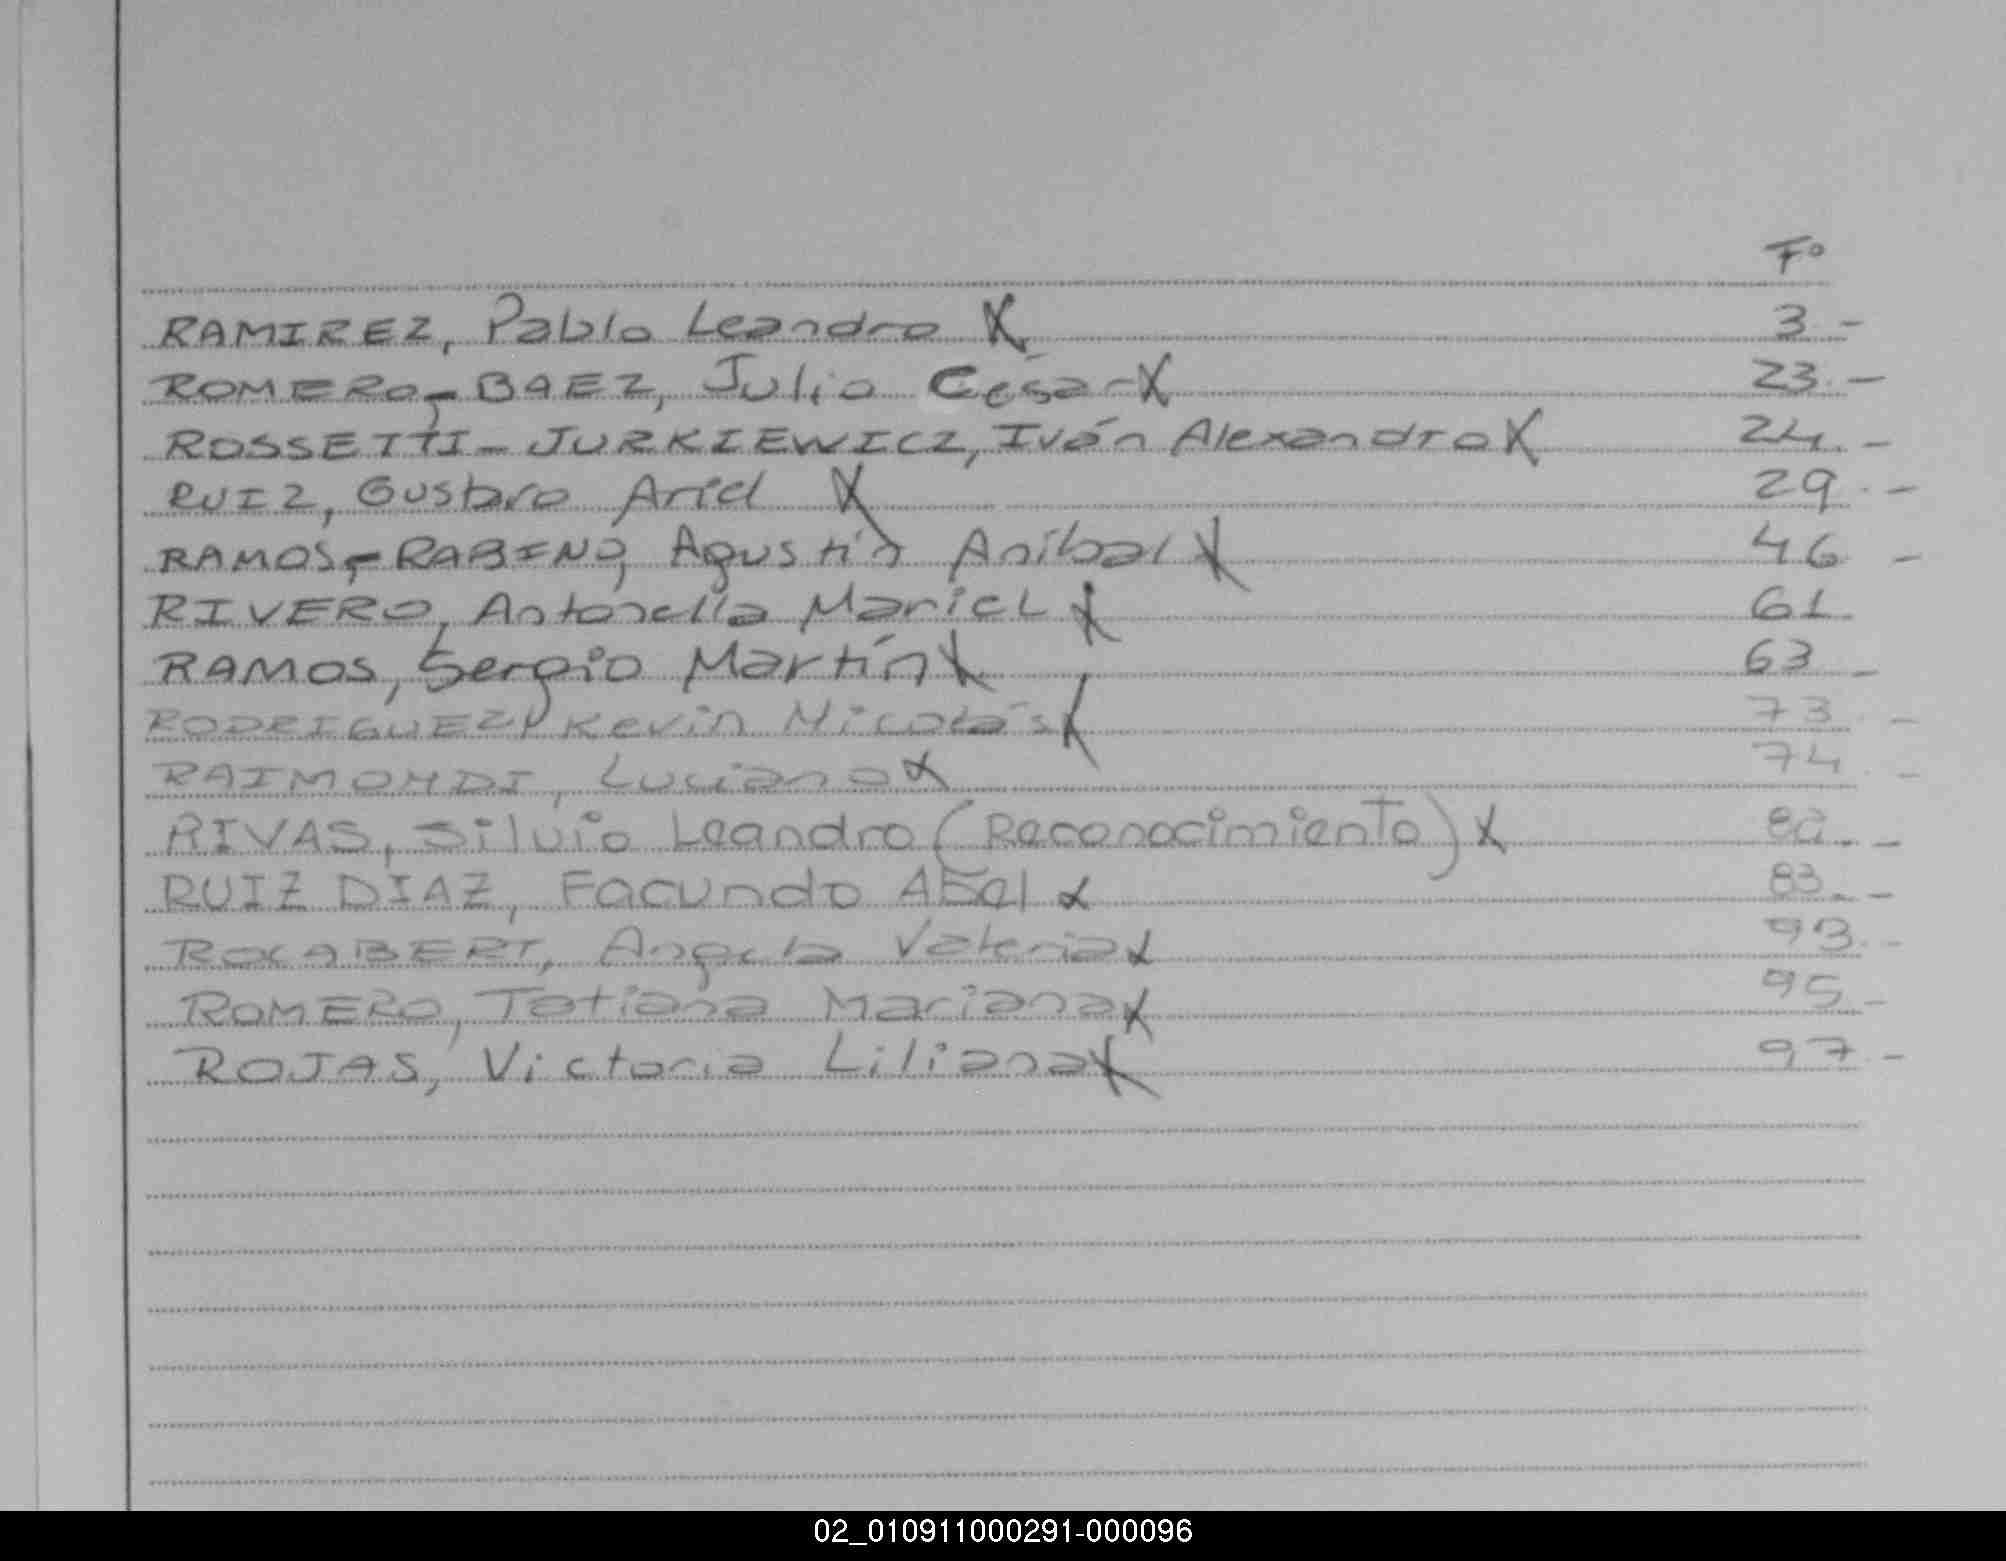 Fº
RAMIREZ, Pablo Leandro X 3.-
ROMERO,-BAEZ, Julio César-X 23.-
ROSSETTI-JURKIEWICZ, Iván Alexandro X 24.-
RUIZ, Gustavo Ariel X 29.-
RAMOS,-RABINO, Agustín Aníbal X 46.-
RIVERO, Antonella Mariel X 61.
RAMOS, Sergio Martín X 63.-
RODRIGUEZ, Kevin Nicolás X 73.-
RAIMONDI, Luciano X 74.-
RIVAS, Silvio Leandro (Reconocimiento) X .-
RUIZ DIAZ, Facundo Abel X 83.-
ROCABERT, Angela Valeria X 93.-
ROMERO, Tatiana Mariana X 95.-
ROJAS, Victoria Liliana X 97.-
02_010911000291-000096